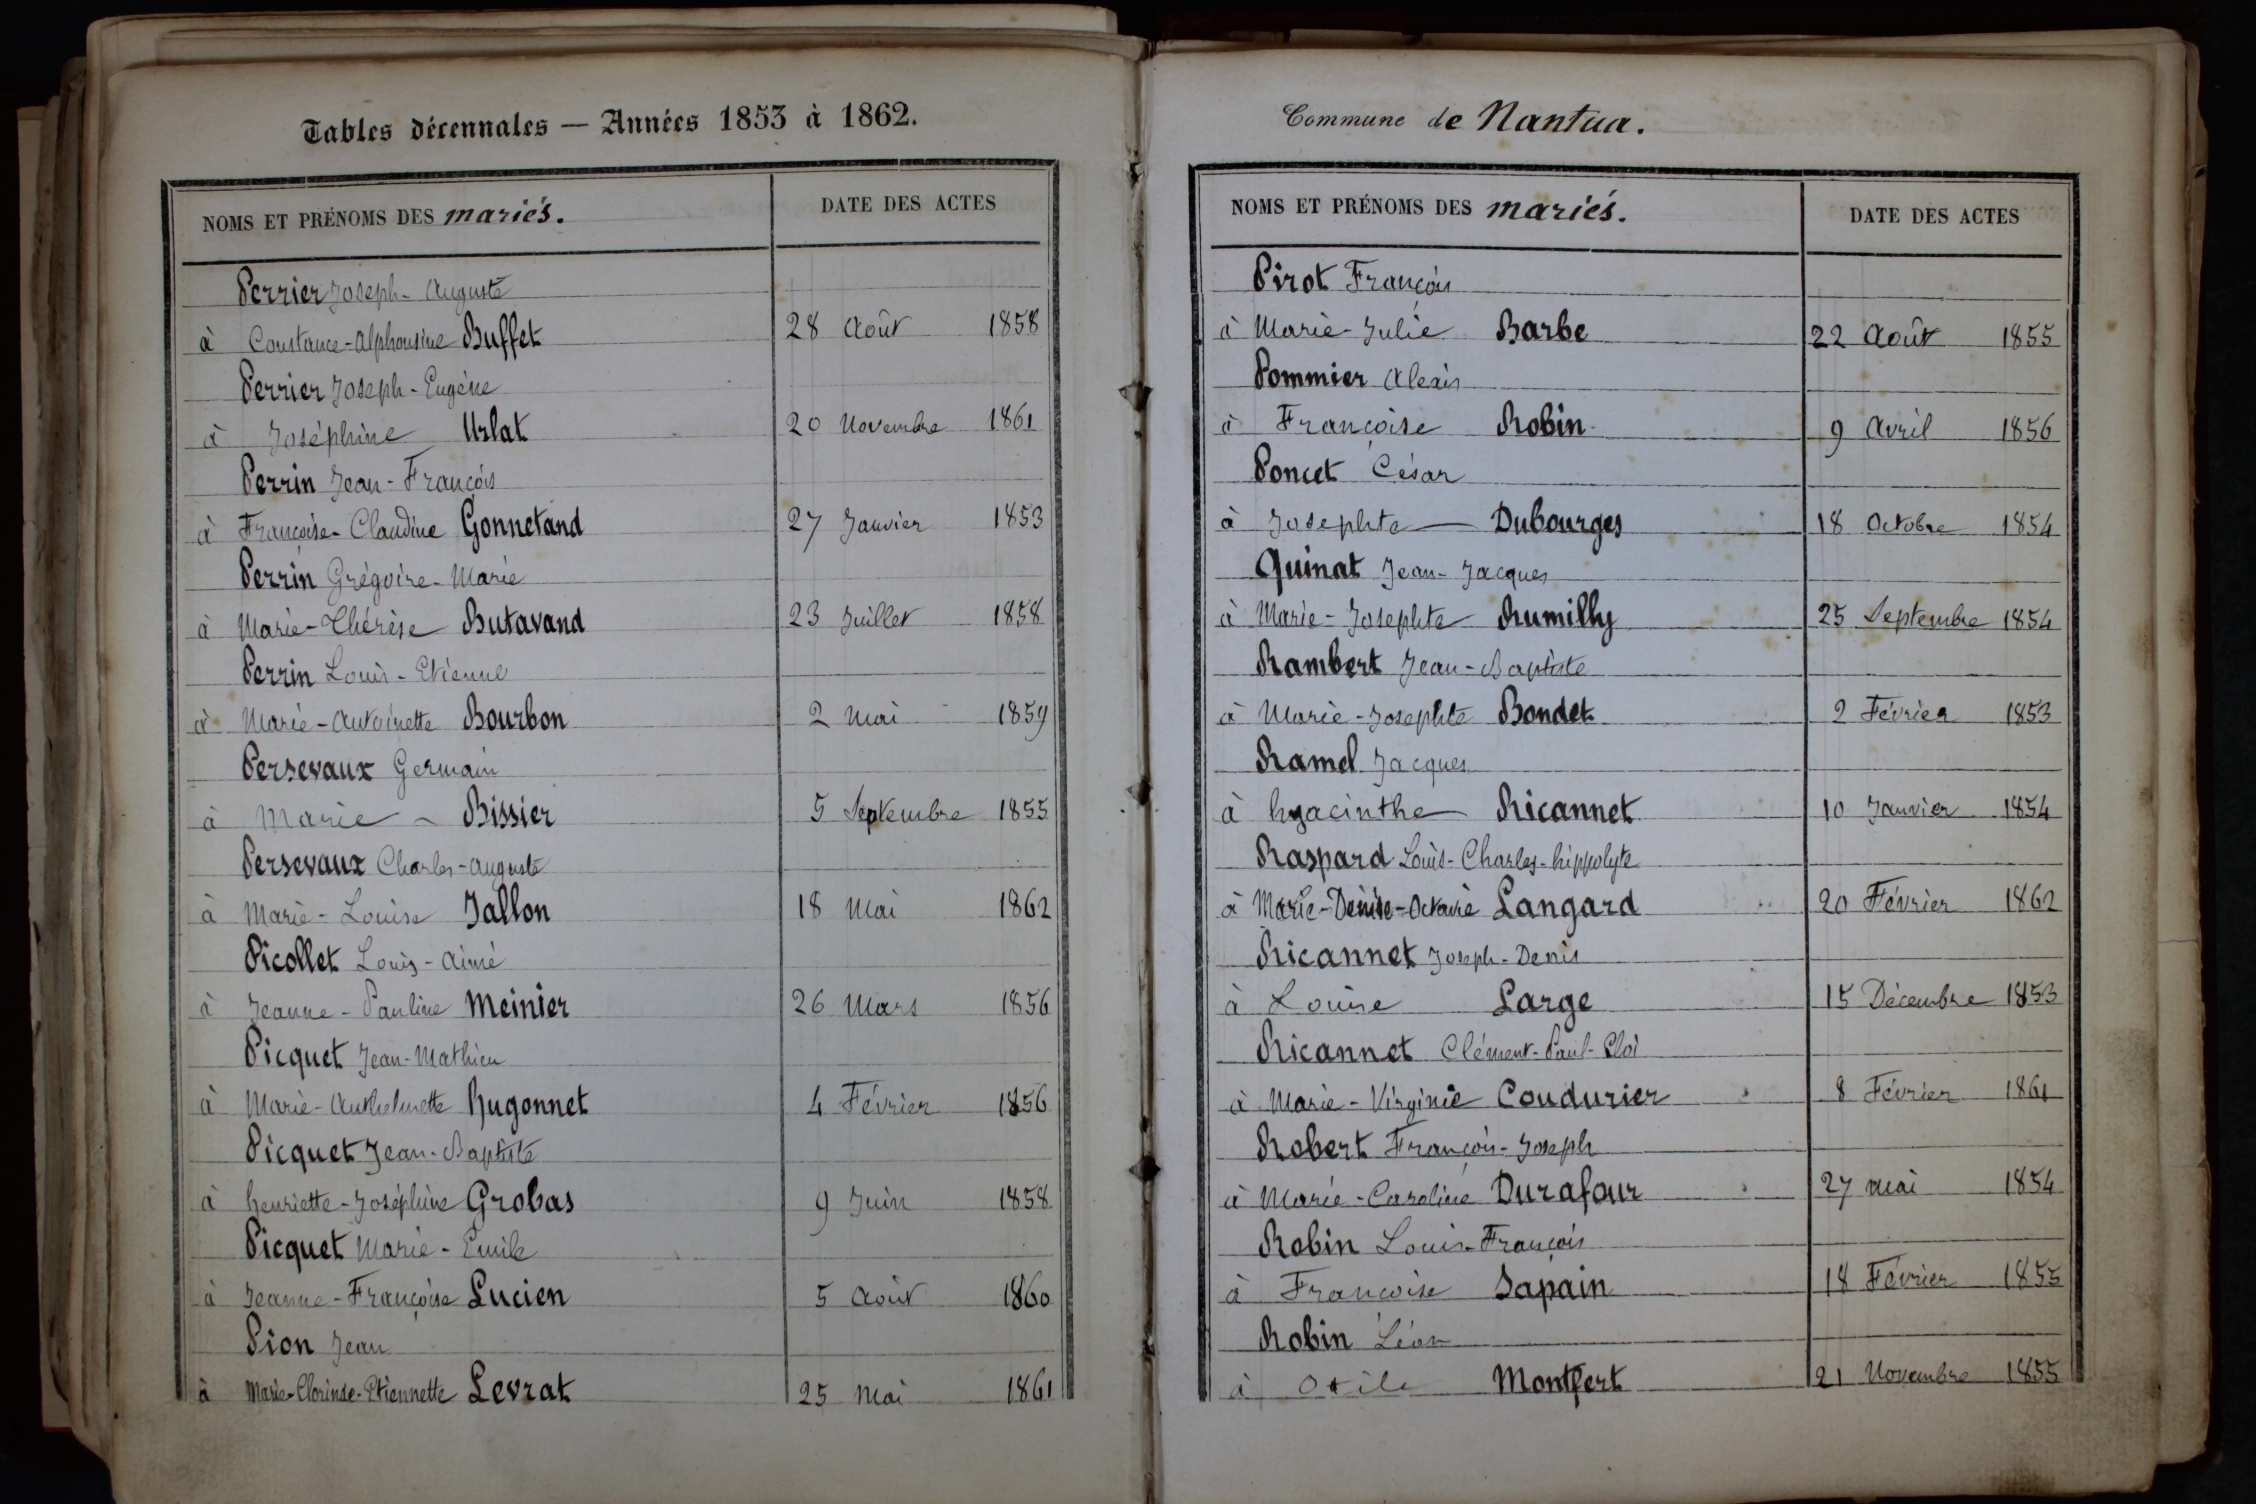 Tables décennales — Années 1853 à 1862.
NOMS ET PRÉNOMS DES mariés. DATE DES ACTES
Perrier Joseph-Auguste
à Constance-Alphonsine Buffet 28 Août 1858
Perrier Joseph-Eugène
à Joséphine Urlat 20 Novembre 1861
Perrin Jean-François
à Françoise-Claudine Gonnetand 27 Janvier 1853
Perrin Grégoire-Marie
à Marie-Thérèse Butavand 23 Juillet 1858
Perrin Louis-Etienne
à Marie-Antoinette Bourbon 2 Mai 1859
Persevaux Germain
à Marie Bissier 5 Septembre 1855
Persevaux Charles-Auguste
à Marie-Louise Jallon 18 Mai 1862
Picollet Louis-Aimé
à Jeanne-Pauline Meinier 26 Mars 1856
Picquet Jean-Mathieu
à Marie-Anthelmette Hugonnet 4 Février 1856
Picquet Jean-Baptiste
à henriette-Joséphine Grobas 9 Juin 1858
Picquet Marie-Emile
à Jeanne-Françoise Lucien 5 Août 1860
Pion Jean
à Marie-Clorinde-Etiennette Levrat 25 Mai 1861
Commune de Nantua.
NOMS ET PRÉNOMS DES mariés. DATE DES ACTES
Pirot François
à Marie-Julie Barbe 22 Août 1855
Pommier Alexis
à Françoise Robin 9 Avril 1856
Poncet César
à Josephte Dubourges 18 Octobre 1854
Quinat Jean-Jacques
à Marie-Josephte Rumilly 25 Septembre 1854
Rambert Jean-Baptiste
à Marie-Josephte Bondet 2 Février 1853
Ramel Jacques
à hyacinthe Ricannet 10 Janvier 1854
Raspard Louis-Charles-hippolyte
à Marie-Denise-Octavie Langard 20 Février 1862
Ricannet Joseph-Denis
à Louise Large 15 Décembre 1853
Ricannet Clément-Paul-Eloi
à Marie-Virginie Coudurier 8 Février 1861
Robert François-Joseph
à Marie-Caroline Durafour 27 mai 1854
Robin Louis-François
à Françoise Sapain 18 Février 1855
Robin Léon
à Otile Montfert 21 Novembre 1855